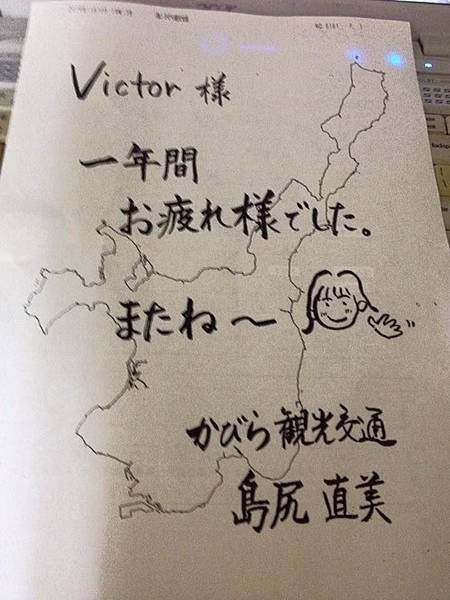 Victor 様
一年間
お疲れ様でした。
またね～
かびら観光交通
島尻 直美